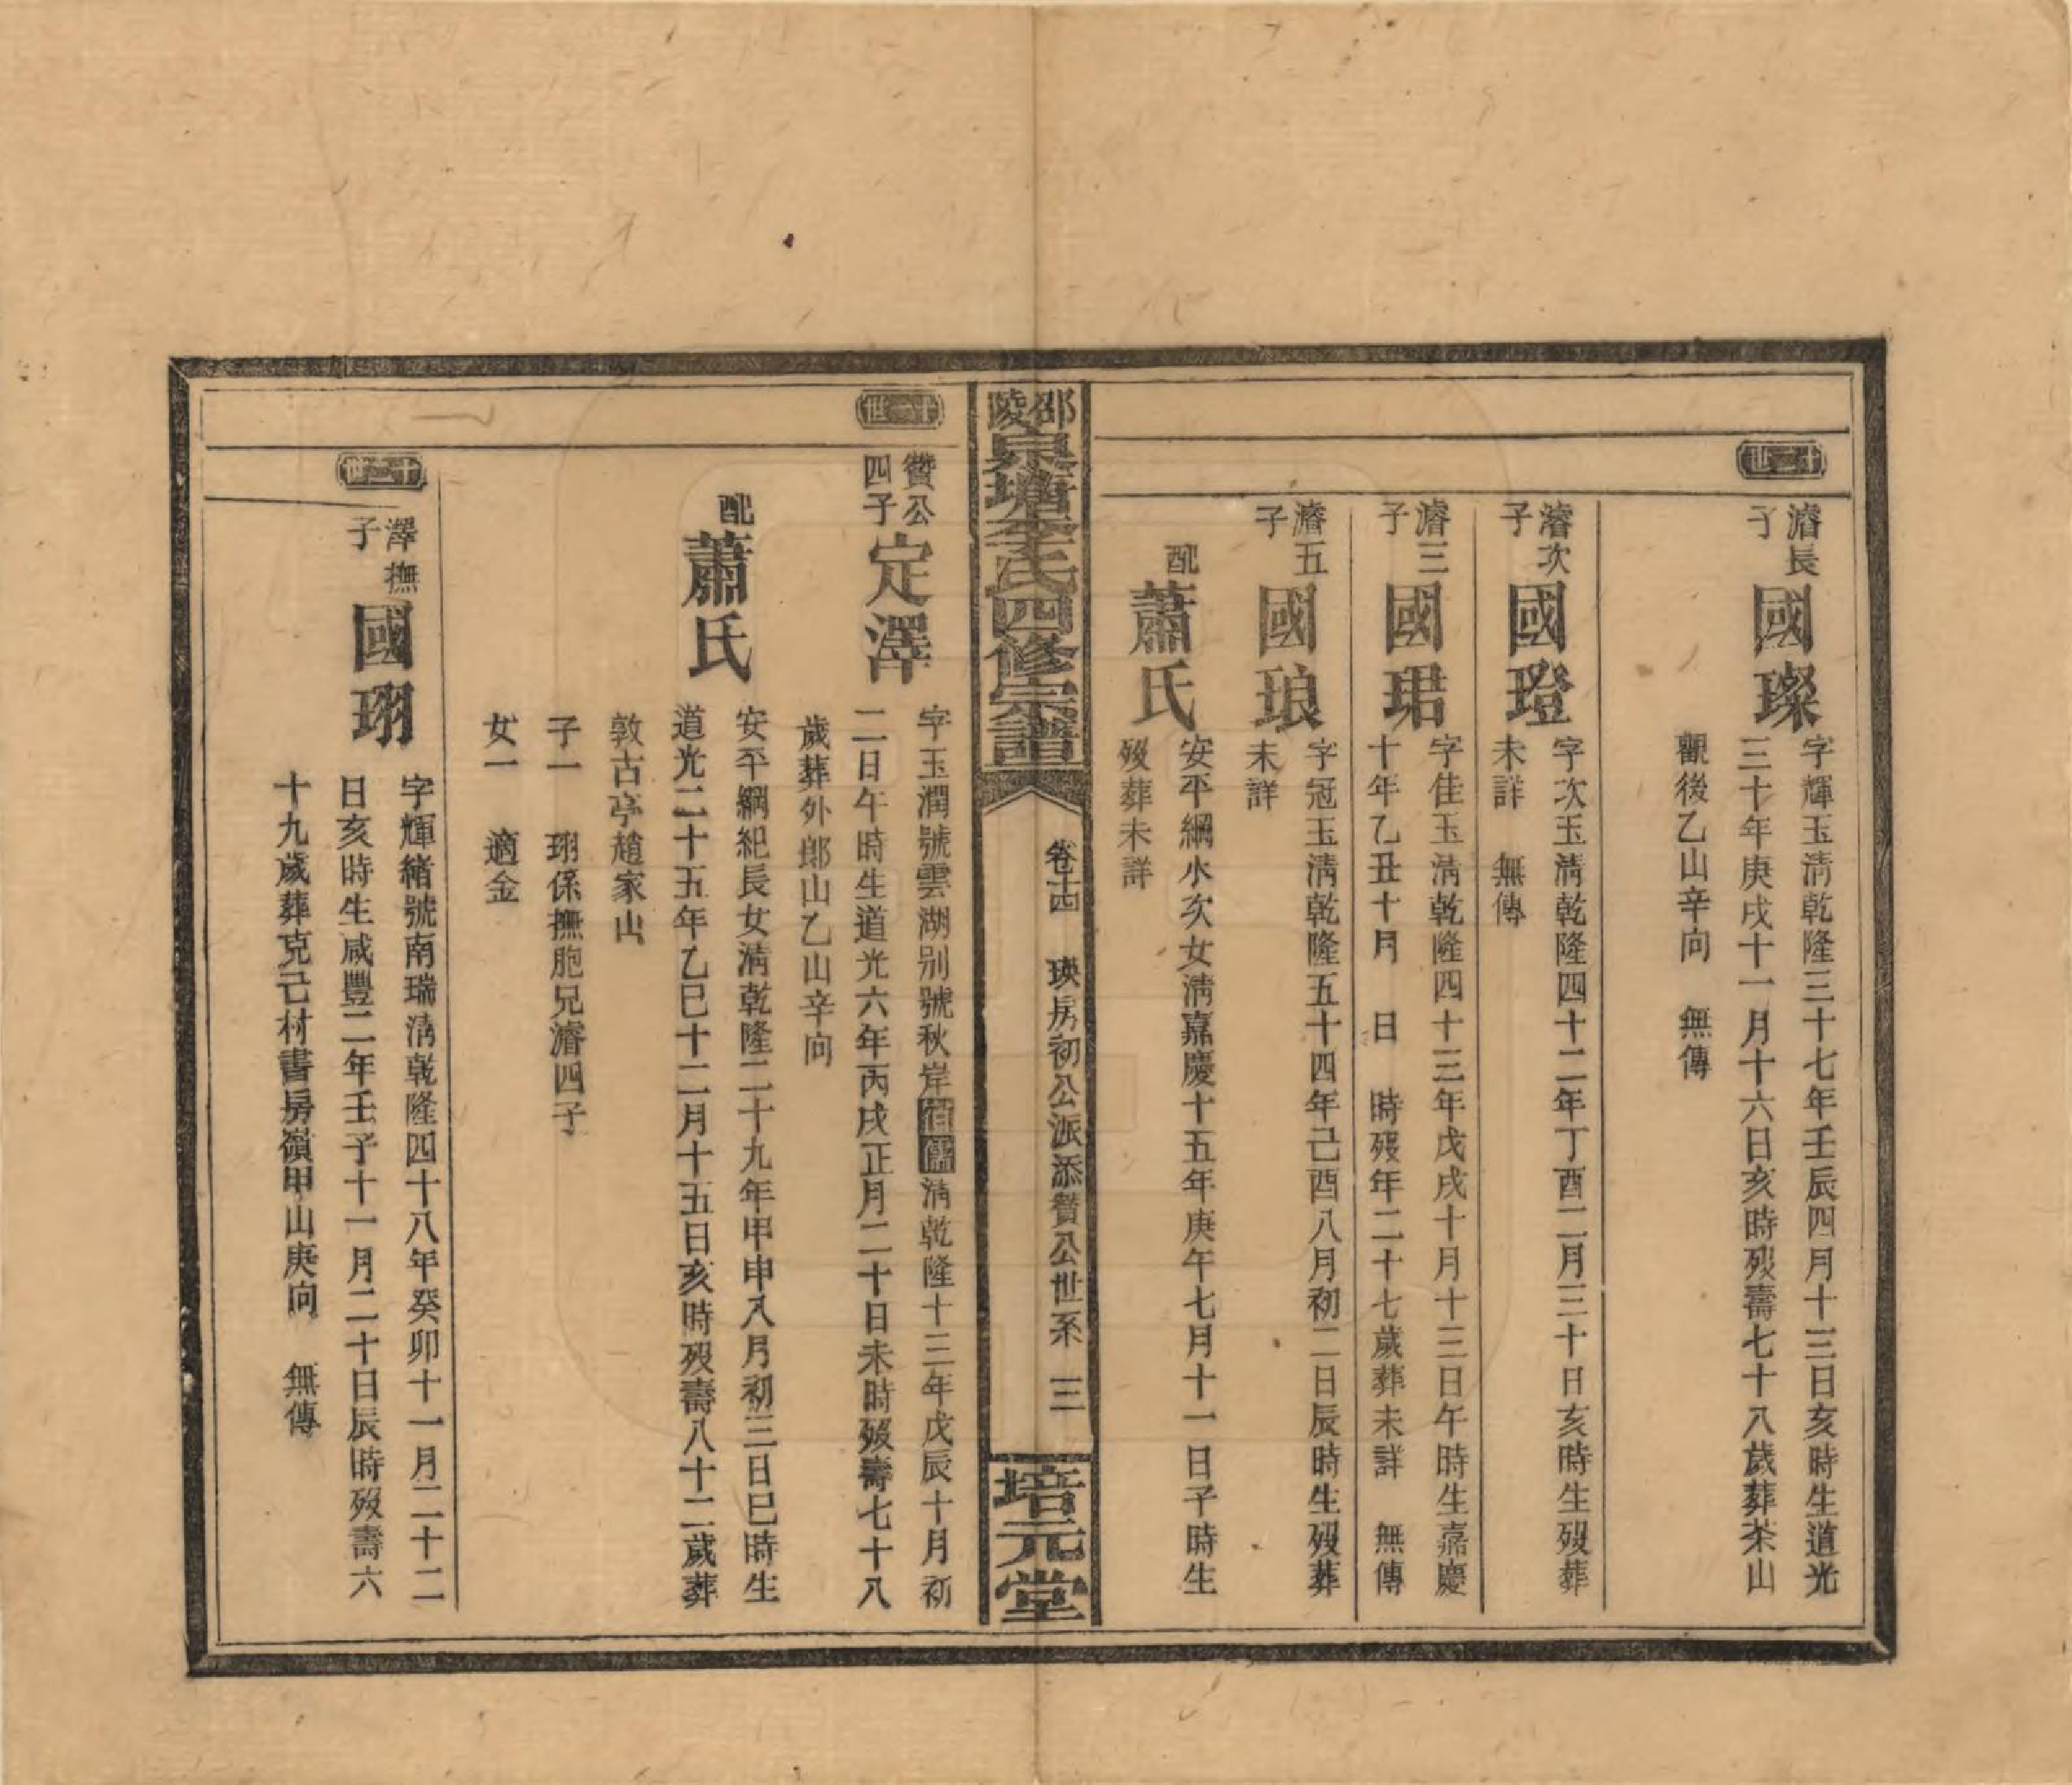 十二世
濬長子
國璨
字輝玉清乾隆三十七年壬辰四月十三日亥時生道光
三十年庚戌十一月十六日亥時歿壽七十八歲葬茶山
觀後乙山辛向　無傳
濬次子
國璒
字次玉清乾隆四十二年丁酉二月三十日亥時生歿葬
未詳　無傳
濬三子
國珺
字佳玉清乾隆四十三年戊戌十月十三日午時生嘉慶
十年乙丑十月　日　時歿年二十七歲葬未詳　無傳
濬五子
國琅
字冠玉清乾隆五十四年己酉八月初二日辰時生歿葬
未詳
配
蕭氏
安平綱水次女清嘉慶十五年庚午七月十一日子時生
歿葬未詳
邵陵泉塘李氏四修宗譜
卷十四　瑛房初公派添贊公世系　三
培元堂
十一世
贊公四子
定澤
字玉潤號雲湖別號秋岸宿儒清乾隆十三年戊辰十月初
二日午時生道光六年丙戌正月二十日未時歿壽七十八
歲葬外郎山乙山辛向
配
蕭氏
安平綱紀長女清乾隆二十九年甲申八月初三日巳時生
道光二十五年乙巳十二月十五日亥時歿壽八十二歲葬
敦古亭趙家山
子一　珝係撫胞兄濬四子
女一　適金
十二世
澤撫子
國珝
字輝緒號南瑞清乾隆四十八年癸卯十一月二十二
日亥時生咸豐二年壬子十一月二十日辰時歿壽六
十九歲葬克己村書房嶺甲山庚向　無傳